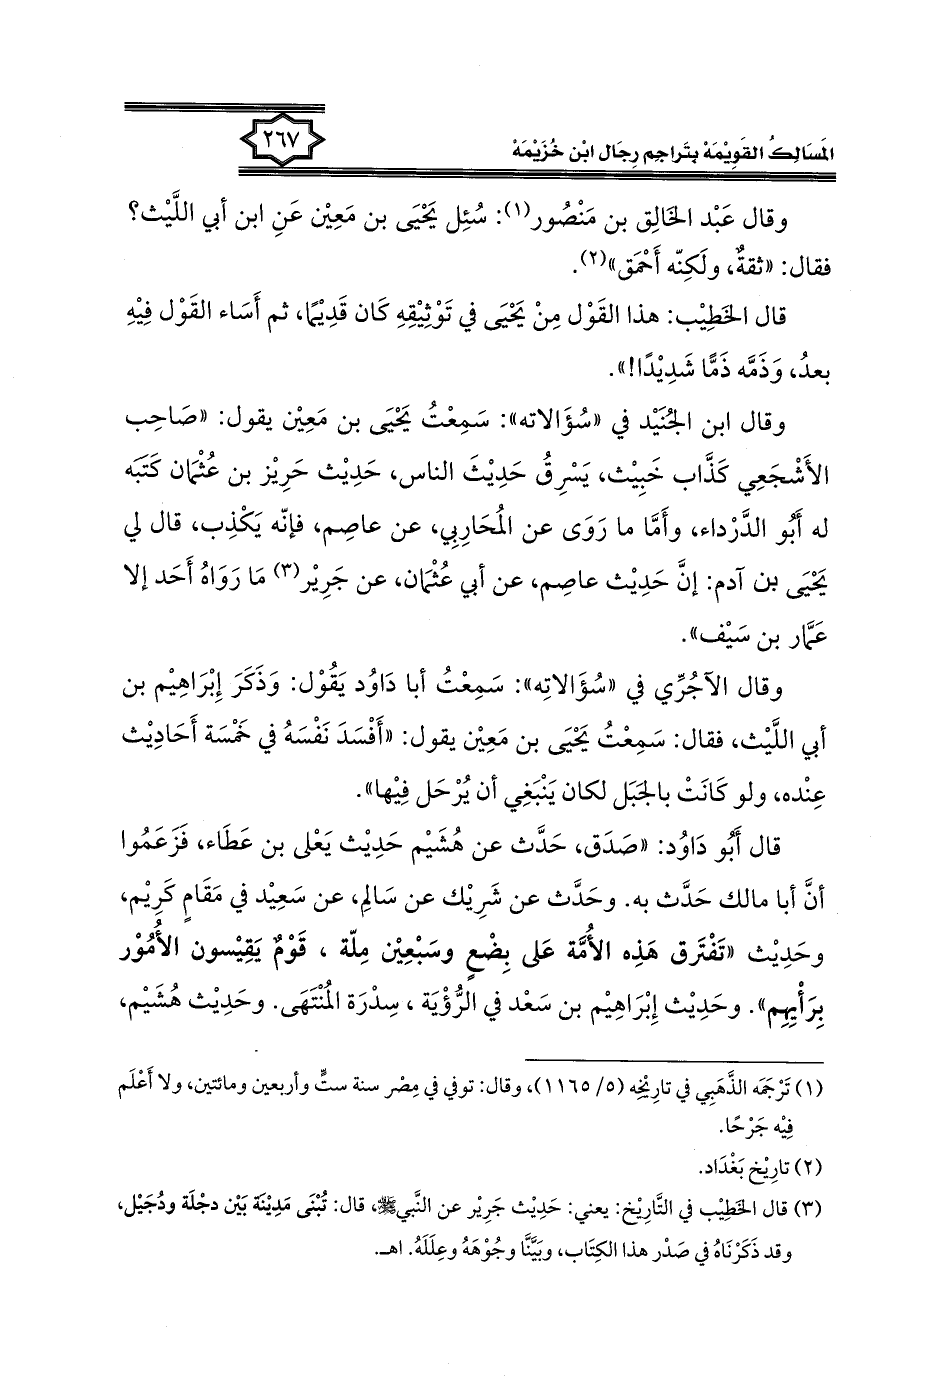 المَسَالِكُ القَوِيْمَهْ بتَراجم رِجَال ابْن خُزَيْمَهْ
٢٦٧
وقال عَبْد الخَالِق بن مَنْصُور(١): سُئِل يَحْيَى بن مَعِيْن عَنِ ابن أبي اللَّيْث؟
فقال: «ثقةٌ، ولَكِنّه أَحْمَق»(٢).
قال الخَطِيْب: هذا القَوْل مِنْ يَحْيَى في تَوْثِيْقِهِ كَان قَدِيْمًا، ثم أَسَاء القَوْل فِيْهِ
بعدُ، وَذَمَّه ذَمًّا شَدِيْدًا!».
وقال ابن الجُنَيْد في «سُؤَالاته»: سَمِعْتُ يَحْيَى بن مَعِيْن يقول: «صَاحِب
الأَشْجَعِي كَذَّاب خَبِيْث، يَسْرِقُ حَدِيْثَ الناس، حَدِيْث حَرِيْز بن عُثْمَان كَتَبَه
له أَبُو الدَّرْداء، وأَمَّا ما رَوَى عن المُحَاربِي، عن عاصِم، فإنّه يَكْذِب، قال لي
يَحْيَى بن آدم: إنَّ حَدِيْث عاصِم، عن أبي عُثْمَان، عن جَرِيْر(٣) مَا رَوَاهُ أَحَد إلا
عَمَّار بن سَيْف».
وقال الآجُرِّي في «سُؤَالاتِه»: سَمِعْتُ أبا دَاوُد يَقُوْل: وَذَكَرَ إِبْرَاهِيْم بن
أبي اللَّيْث، فقال: سَمِعْتُ يَحْيَى بن مَعِيْن يقول: «أَفْسَدَ نَفْسَهُ في خَمْسَة أَحَادِيْث
عِنْده، ولو كَانَتْ بالجَبَل لكان يَنْبَغِي أن يُرْحَل فِيْها».
قال أَبُو دَاوُد: «صَدَق، حَدَّث عن هُشَيْم حَدِيْث يَعْلى بن عَطَاء، فَزَعَمُوا
أنَّ أبا مالك حَدَّث به. وحَدَّث عن شَرِيْك عن سَالِم، عن سَعِيْد في مَقَامٍ كَرِيْم،
وحَدِيْث «تَفْتَرق هَذِه الأُمَّة عَلى بِضْعٍ وسَبْعِيْن مِلّة ، قَوْمٌ يَقِيْسون الأُمُوْر
بِرَأْيِهِم». وحَدِيْث إبْرَاهِيْم بن سَعْد في الرُّؤْيَة ، سِدْرَة المُنْتَهَى. وحَدِيْث هُشَيْم،
(١) تَرْجَمَه الذَّهَبِي في تاريْخِه (٥/ ١١٦٥)، وقال: توفي في مِصْر سنة ستٍّ وأربعين ومائتين، ولا أَعْلَم
فِيْه جَرْحًا.
(٢) تاريْخ بَغْدَاد.
(٣) قال الخَطِيْب في التَّاريْخ: يعني: حَدِيْث جَرِيْر عن النَّبي ﷺ، قال: تُبْنَى مَدِيْنَة بَيْن دجْلَة ودُجَيْل،
وقد ذَكَرْنَاهُ في صَدْر هذا الكِتَاب، وبَيَّنَّا وجُوْهَهُ وعِلَلَهُ. اهـ.